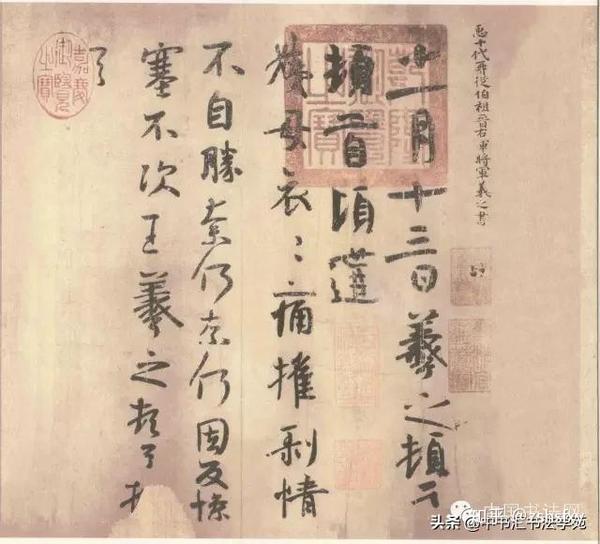 臣十代再從伯祖晉右軍將軍羲之書
十一月十三日羲之頓首
頓首頃遘
姨母哀〻痛摧剝情
不自勝奈何奈何因反慘
塞不次王羲之頓首頓
首
乾隆御覽之寶
嘉慶御覽之寶
中国书法网
头条 @中书汇书法学苑